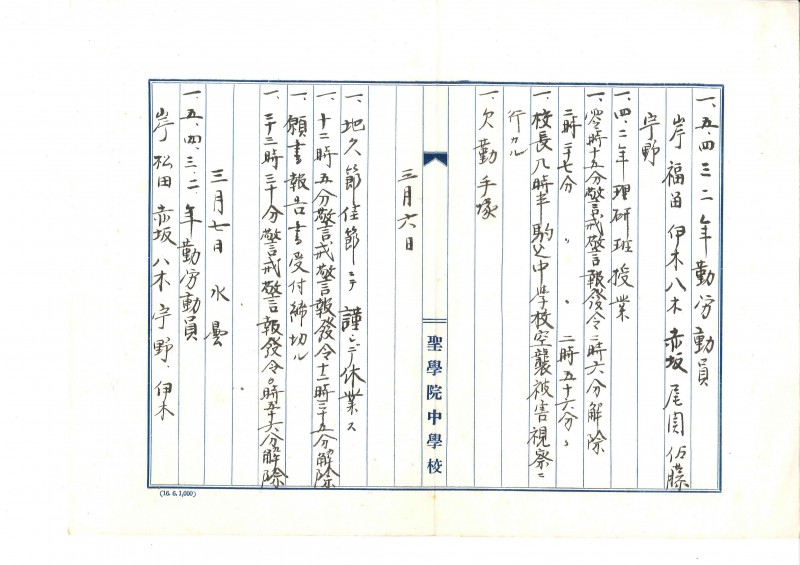 一、五、四、三、二年勤労動員
岸 福留 伊木 八木 赤坂 尾関 佐藤
宇野
一、四、二年理研班授業
一、零時十五分警戒警報發令二時六分解除
二時二十七分 〃 〃 二時五十六分〃
一、校長八時半駒込中学校空襲被害視察ニ
行カル
一、欠勤手塚
三月六日
聖學院中學校
一、地久節佳節ニテ謹ンデ休業ス
一、十二時五分警戒警報發令十二時三十五分解除
一、願書報告書受付締切ル
一、二十三時三十分警戒警報發令〇時五十六分解除
三月七日 水 曇
一、五、四、三、二、年勤労動員
岸 松田 赤坂 八木 宇野、伊木
(16. 6. 1,000)